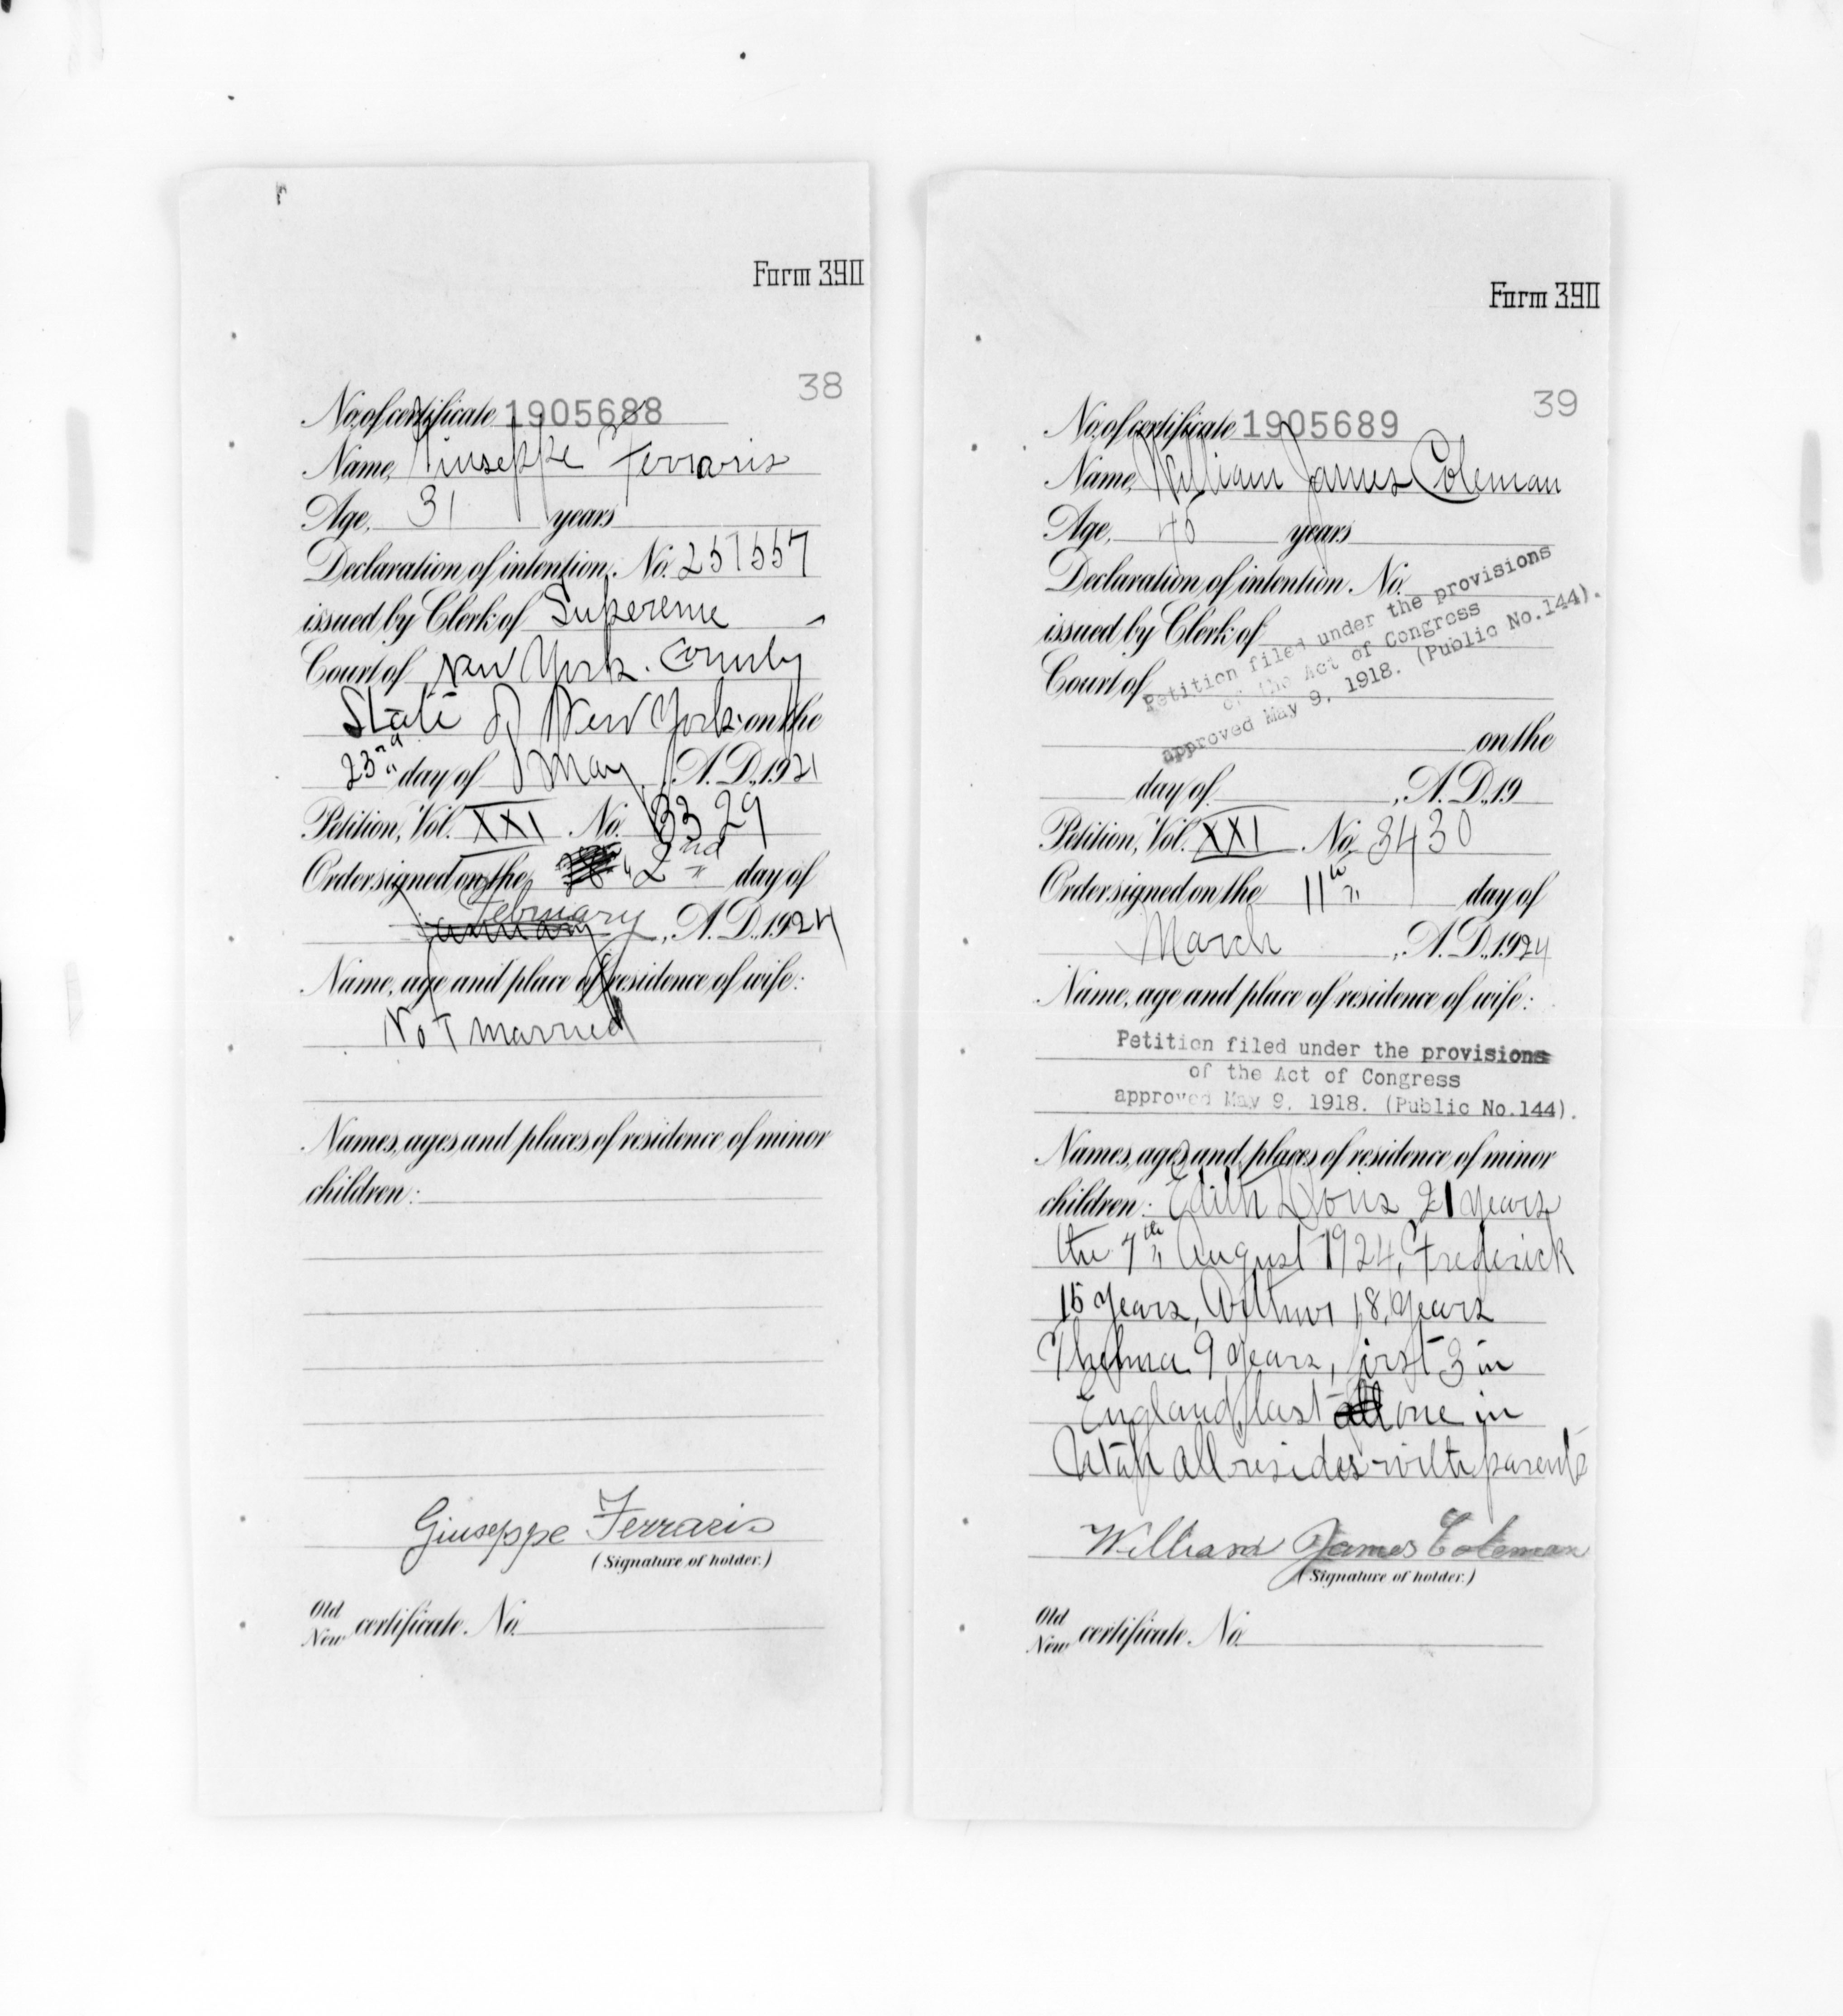 Form 390
38
No. of certificate 1905688
Name, Giuseppe Ferraris
Age, 31 years
Declaration of intention, No. 257557
issued by Clerk of Supereme
Court of New York. County
State of New York on the
23rd day of May, A. D., 1921
Petition, Vol. XXI No. 3329
Order signed on the 2nd day of
February, A. D., 1924
Name, age and place of residence of wife:
Not married
Names, ages and places of residence of minor
children:
Giuseppe Ferraris
(Signature of holder.)
Old
New certificate. No.
Form 390
39
No. of certificate 1905689
Name, William James Coleman
Age, 45 years
Declaration of intention. No.
issued by Clerk of
Court of
Petition filed under the provisions
of the Act of Congress
approved May 9, 1918. (Public No.144).
on the
day of , A. D., 19
Petition, Vol. XXI No. 3430
Order signed on the 11th day of
March, A. D., 1924
Name, age and place of residence of wife:
Petition filed under the provisions
of the Act of Congress
approved May 9, 1918. (Public No.144).
Names, ages and places of residence of minor
children: Edith Doris 21 years
the 7th August 1924, Frederick
15 years, Arthur 18, years
Thelma 9 years, first 3 in
England, last one in
Utah all resides with parents
William James Coleman
(Signature of holder.)
Old
New certificate. No.